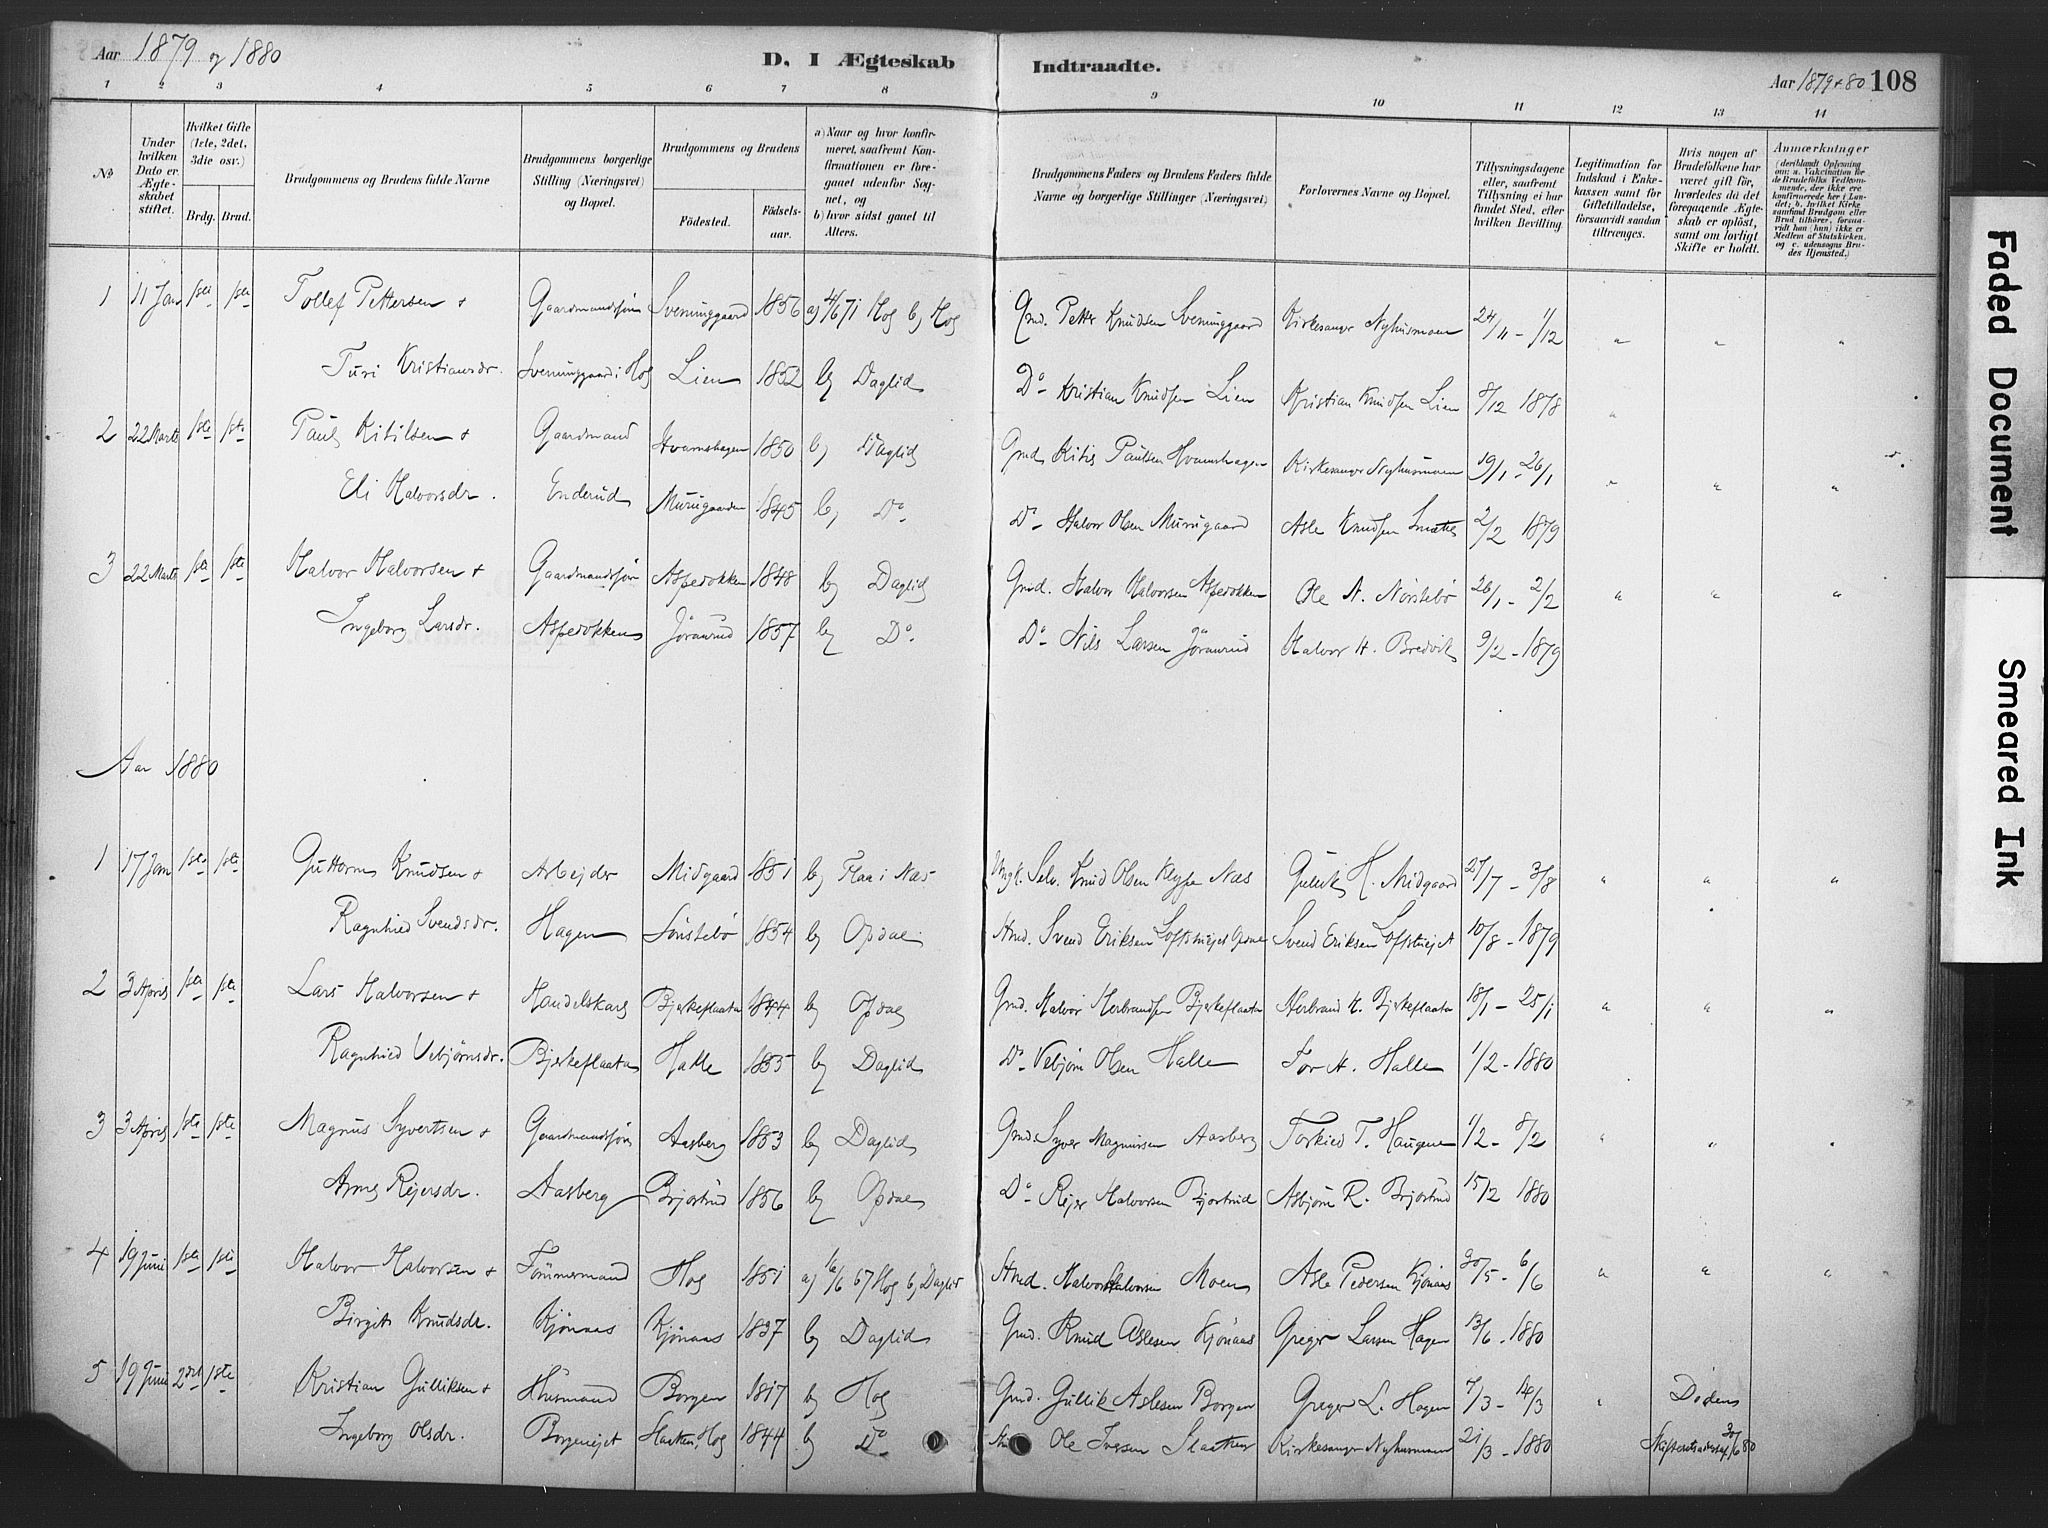 Aar 1879 og 1880
D. I Ægteskab Indtraadte.
Aar 1879 & 80 108
1 2 3 4 5 6 7 8 9 10 11 12 13 14
No
Under hvilken Dato er Ægteskabet stiftet.
Hvilket Gifte (1ste, 2det, 3die osv.)
Brdg. Brud.
Brudgommens og Brudens fulde Navne
Brudgommens borgerlige Stilling (Næringsvei) og Bopæl.
Brudgommens og Brudens
Fødested. Fødselsaar.
a) Naar og hvor konfirmeret, saafremt Konfirmationen er foregaaet udenfor Sognet, og
b) hvor sidst gaaet til Alters.
Brudgommens Faders og Brudens Faders fulde Navne og borgerlige Stillinger (Næringsvei)
Forlovernes Navne og Bopæl.
Tillysningsdagene eller, saafremt Tillysning ei har fundet Sted, efter hvilken Bevilling
Legitimation for Indskud i Enkekassen samt for Giftetilladelse, forsaavidt saadan tiltrænges.
Hvis nogen af Brudefolkene har været gift før, hvorledes da det foregaaende Ægteskab er opløst, samt om lovligt Skifte er holdt.
Anmærkninger
(deriblandt Oplysning om: a. Vakcination for de Brudefolks Vedkommende, der ikke ere konfirmerede her i Landet; b. hvilket Kirkesamfund Brudgom eller Brud tilhører, forsaavidt han (hun) ikke er Medlem af Statskirken, og c. udensogns Brudes Hjemsted.)
1 11 Jan 1ste 1ste Tollef Pettersen & Gaardmandssøn Sveinunggaard 1856 a) 4/6 71 Hog b) Hog Gmd. Petter Knudsen Sveinunggaard Kirkesanger Nyhusmoen 24/11 - 1/12 " " "
Turi Kristiansdr. Sveinunggaard i Hog Lien 1852 b) Daglid Do Kristian Knudsen Lien Kristian Knudsen Lien 8/12 1878 "
2 22 Marts 1ste 1ste Paul Kitilsen & Gaardmand Hvamshagen 1850 b) Daglid Gmd. Kitil Paulsen Hvamshagen Kirkesanger Nyhusmoen 19/1 - 26/1 " " "
Eli Halvorsdr. Enderud Murugaarden 1845 b) Do Do Halvor Olsen Murugaard Asle Knudsen 2/2 1879
3 22 Marts 1ste 1ste Halvor Halvorsen & Gaardmandssøn Aspedokken 1848 b) Daglid Gmd. Halvor Halvorsen Aspedokken Ole N. Nørstebø 26/1 - 2/2 " " "
Ingeborg Larsdr. Aspedokken Jøranrud 1857 b) Do Do Nils Larsen Jøranrud Halvor H. Bredvik 9/2 - 1879
Aar 1880
1 17 Jan 1ste 1ste Guttorm Knudsen & Arbejder Midgaard 1851 b) Flaa i Næs Ungk. Selv. Knud Olsen Kleppe Næs Gulik H. Midgaard 27/7 - 3/8 " " "
Ragnhild Svendsdr. Hagen Sønstebø 1854 b) Opdal Hmd. Svend Eriksen Loftsteiet Svend Eriksen Loftsteiet 10/8 - 1879
2 3 April 1ste 1ste Lars Halvorsen & Handelskarl Bjerkeflaata 1844 b) Opdal Gmd. Halvor Herbrandsen Bjerkeflaata Herbrand H. Bjerkeflaata 18/1 - 25/1 " " "
Ragnhild Vebjørnsdr. Bjerkeflaata Halle 1855 b) Daglid Do Vebjørn Olsen Halle Tor A. Halle 1/2 - 1880
3 3 April 1ste 1ste Magnus Syvertsen & Gaardmandssøn Aasberg 1853 b) Daglid Gmd. Syver Magnussen Aasberg Torkild T. Haugene 1/2 - 8/2 " " "
Anne Rejersdr. Aasberg Brjøtrud 1856 b) Opdal Do Rejer Halvorsen Brjøtrud Asbjørn R. Brjøtrud 15/2 1880
4 19 Juni 1ste 1ste Halvor Halvorsen & Tømmermand Hog 1851 a) 16/6 67 Hog b) Daglid Hmd. Halvor Halvorsen Moen Asle Pedersen Kjønaas 30/5 - 6/6 " " "
Birgit Knudsdr. Kjønaas Kjønaas 1837 b) Daglid Gmd. Knud Aslesen Kjønaas Greger Larsen Hagen 13/6 - 1880
5 19 Juni 2det 1ste Kristian Gulliksen & Husmand Borgen 1817 b) Hog Gmd. Gullik Aslesen Borgen Greger L. Hagen 7/3 - 14/3 " Døden
Ingeborg Olsdr. Borgeneiet Slaatten, Hog 1844 b) Do Hmd. Ole Iversen Slaatten Kirkesanger Nyhusmoen 21/3 - 1880 Skifteretsattest af 30/6 80
Faded Document
Smeared Ink